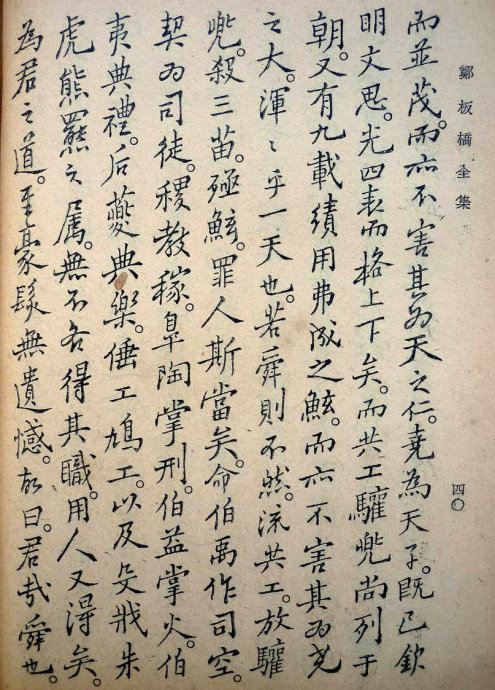 鄭板橋全集
四〇
而並茂。而亦不害其為天之仁。堯為天子。既已欽
明文思。光四表而格上下矣。而共工驩兜尚列于
朝。又有九載績用弗成之鯀。而亦不害其為堯
之大。渾〻乎一天也。若舜則不然。流共工。放驩
兜。殺三苗。殛鯀。罪人斯當矣。命伯禹作司空。
契為司徒。稷教稼。皐陶掌刑。伯益掌火。伯
夷典禮。后夔典樂。倕工鳩工。以及殳戕朱
虎熊羆之属。無不各得其職。用人又得矣。
為君之道。至豪髮無遺憾。故曰。君哉舜也。